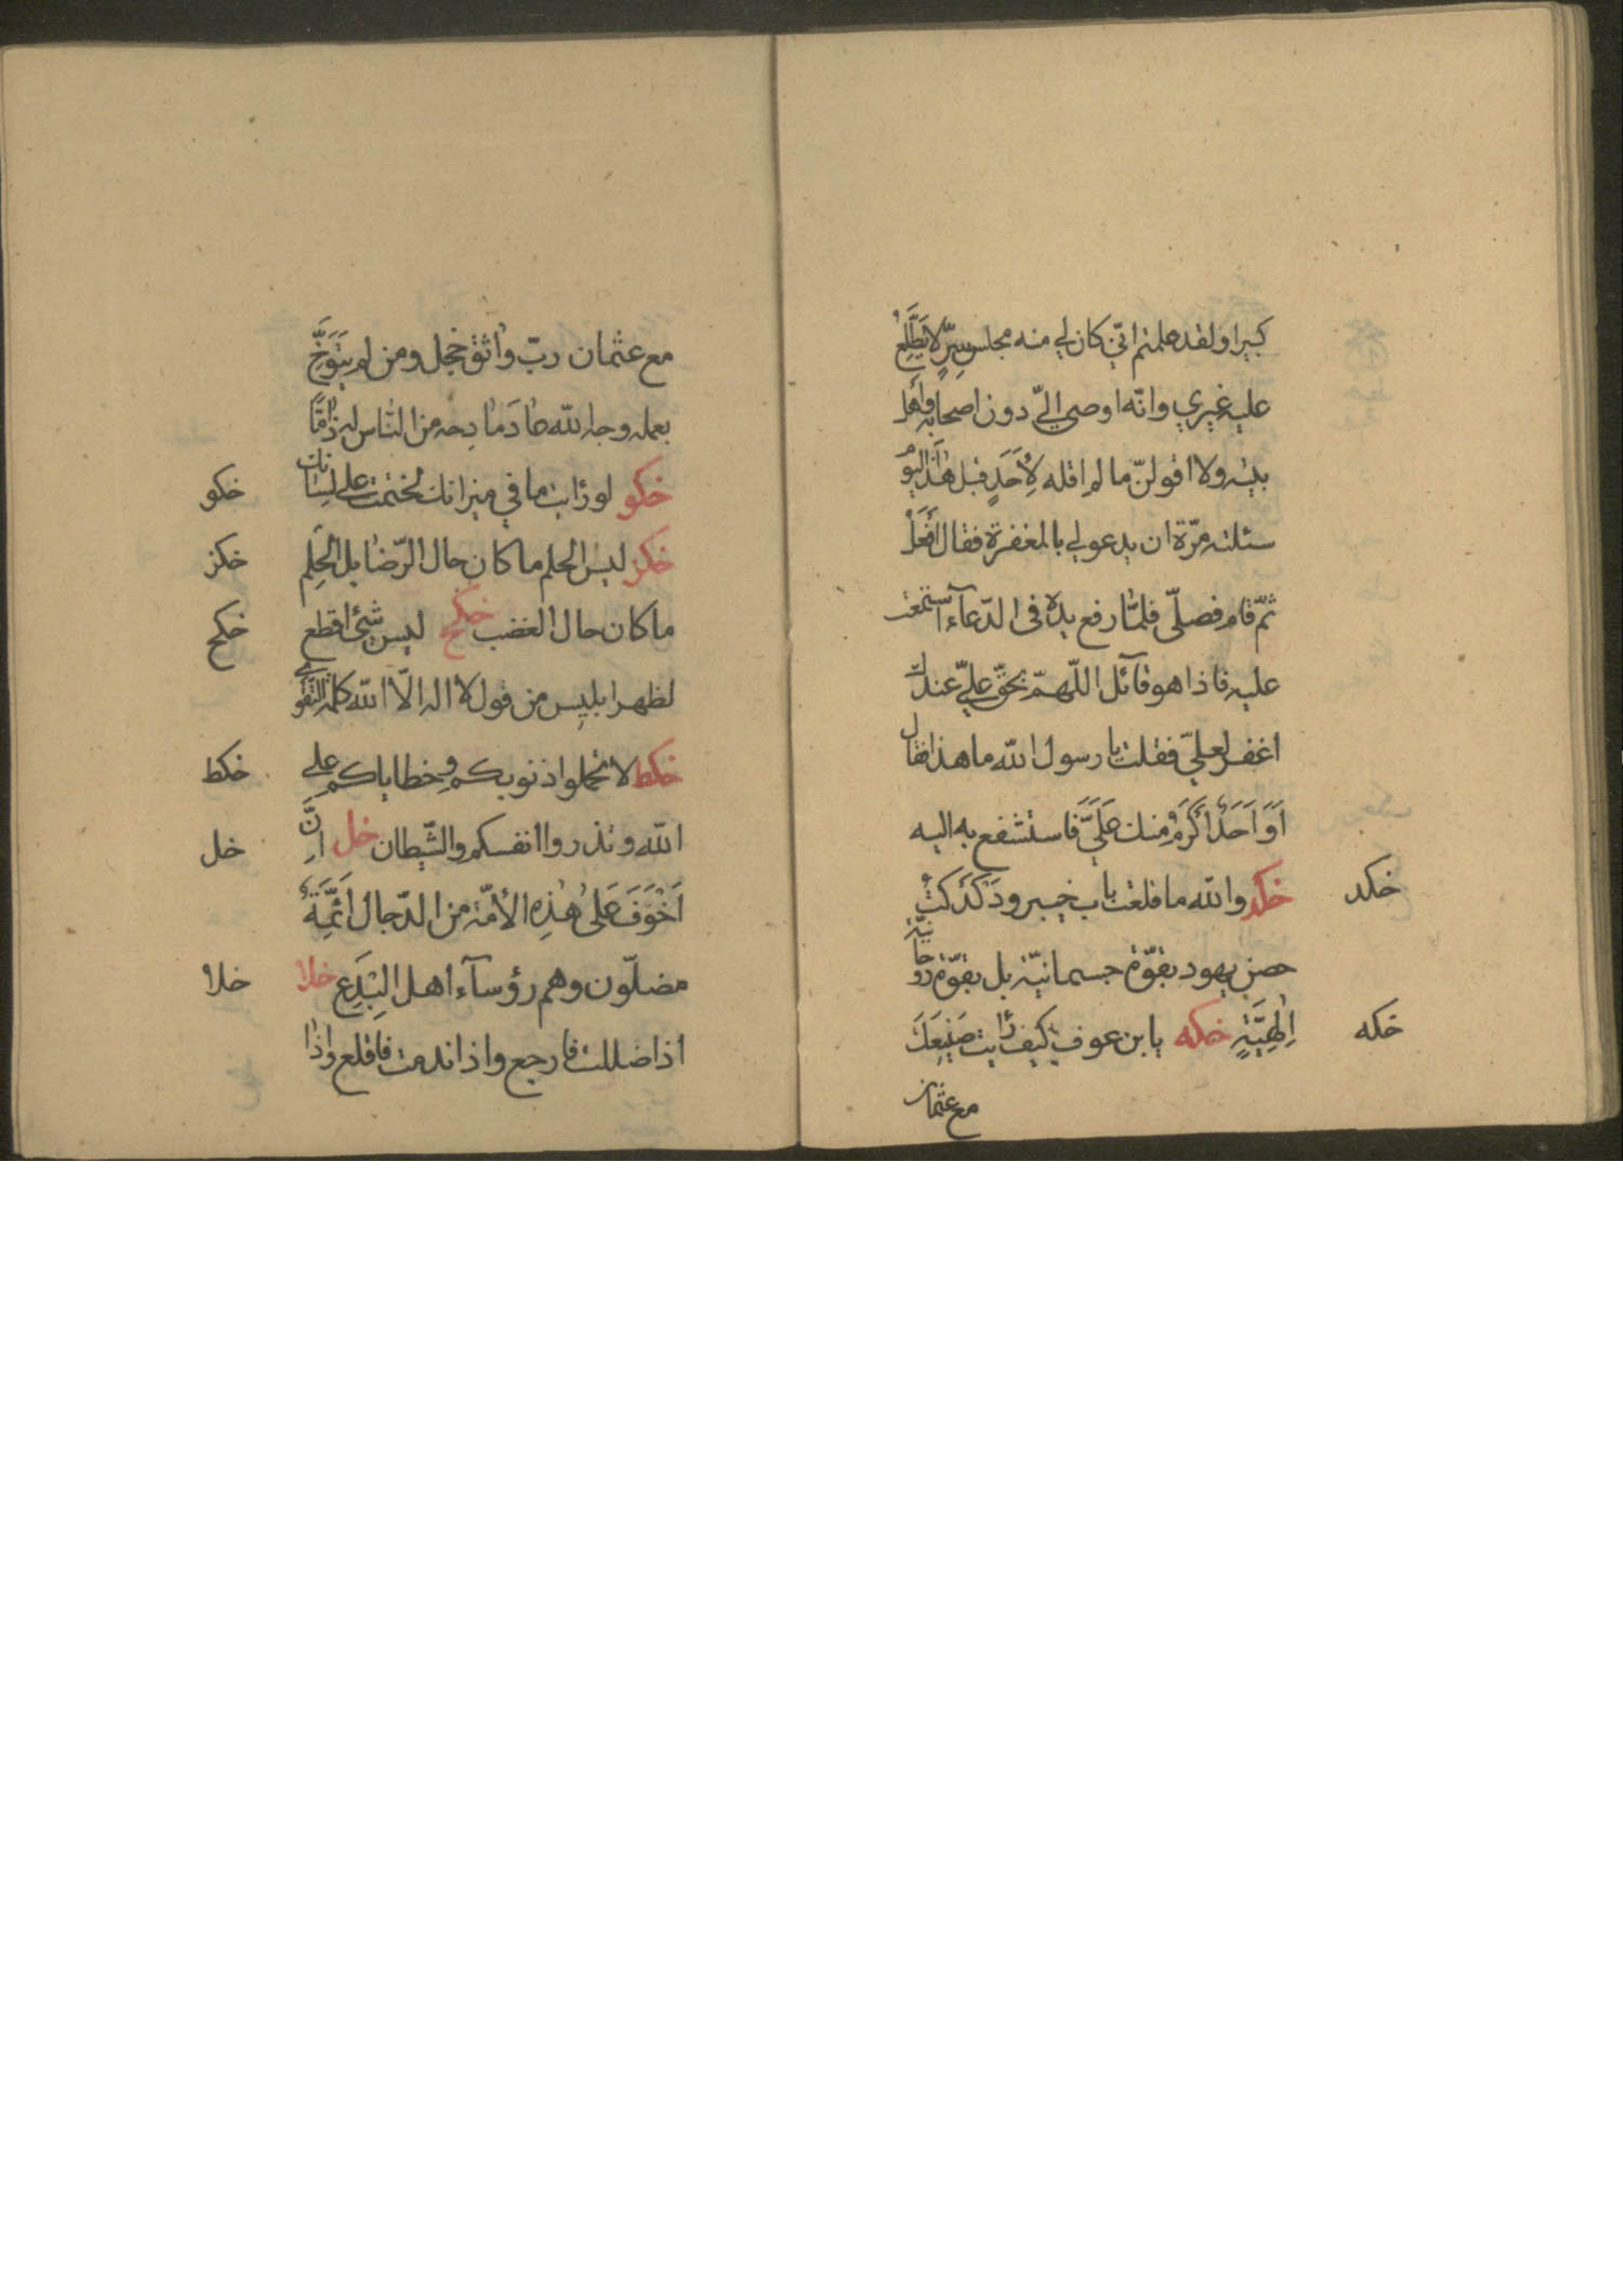 كبيرا ولقد علمتم انّي كان لي منه مجلس سِرٍّ لا يَطَّلِعُ
عليه غيري وانّه اوصى اليّ دون اصحابه وأهل
بيته ولا اقولنّ ما لم اقله لِأَحَدٍ قبل هٰذَا اليوم
سئلته مرّة ان يدعو لي بالمغفرة فقال أَفْعَلُ
ثمّ قام فصلّى فلمّا رفع يده فى الدّعآء استمعت
عليه فاذا هو قآئل اللّهمّ بحقّ عليّ عندك
اغفر لعليّ فقلت يا رسول الله ما هذا فقال
اَوَ اَحَدٌ اَكْرَمُ مِنك عَلَيَّ فاستشفع به اليه
خكد خكد والله ما قلعت باب خيبر ودَكْدَكْتُ
حصن يهود بقوّة جسمانيّة بل بقوّة روحانيّة
خكه اِلٰهِيَّةٍ خكه يا بن عوف كيف رأيت صَنِيعَكَ
مع عثمان
مع عثمان ربّ واثق خجل ومن لم يَتَوَخَّ
بعمله وجه الله عادَ مادِحه من النّاس له ذامًّا
خكو لو رأيت ما في ميزانك لختمت على لسانك خكو
خكز ليس الحلم ما كان حال الرّضا بل الحِلم خكز
ما كان حال الغضب خكح ليس شئ اقطع خكح
لظهر ابليس من قول لا اله الّا الله كلمة التّقوى
خكط لا تحملوا ذنوبكم وخطاياكم على خكط
الله وتذروا انفسكم والشّيطان خل اِنَّ خل
اَخْوَفَ عَلىٰ هٰذِهِ الأمّة من الدّجال اَئِمَّةٌ
مضلّون وهم رؤسآء اهل البِدَعِ خلا خلا
اذا ضللت فارجع واذا ندمت فاقلع واذا